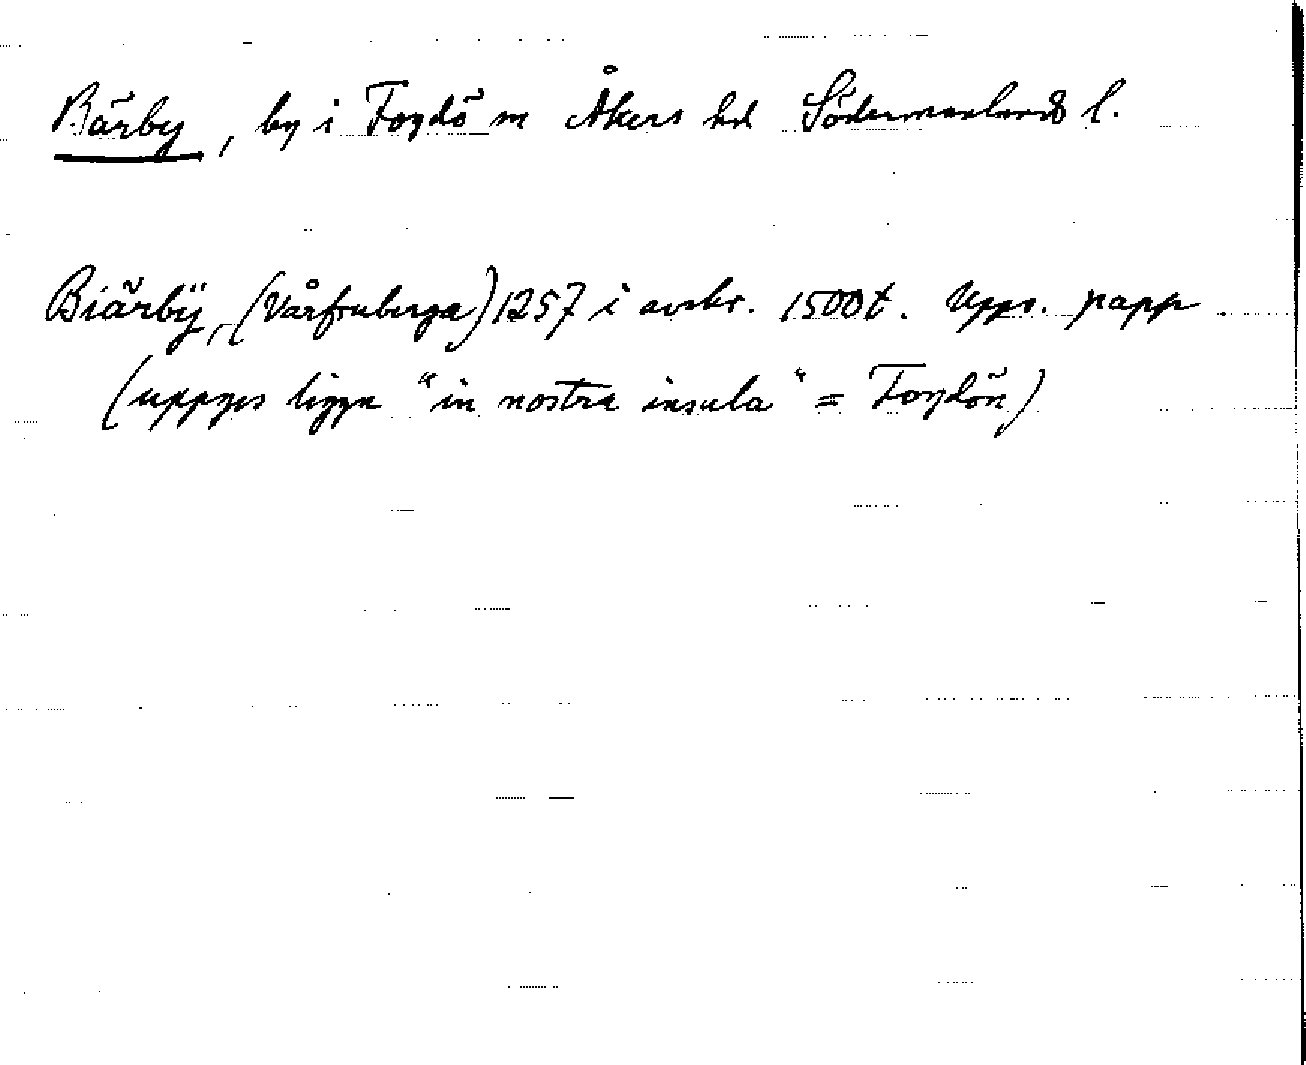 Bärby, by i Fogdö sn Åkers hd Södermanlands l.
Biärbÿ, (Vårfruberga) 1257 i avskr. 1500t. Upps. papp
(uppges ligga "in nostra insula" = Fogdön)